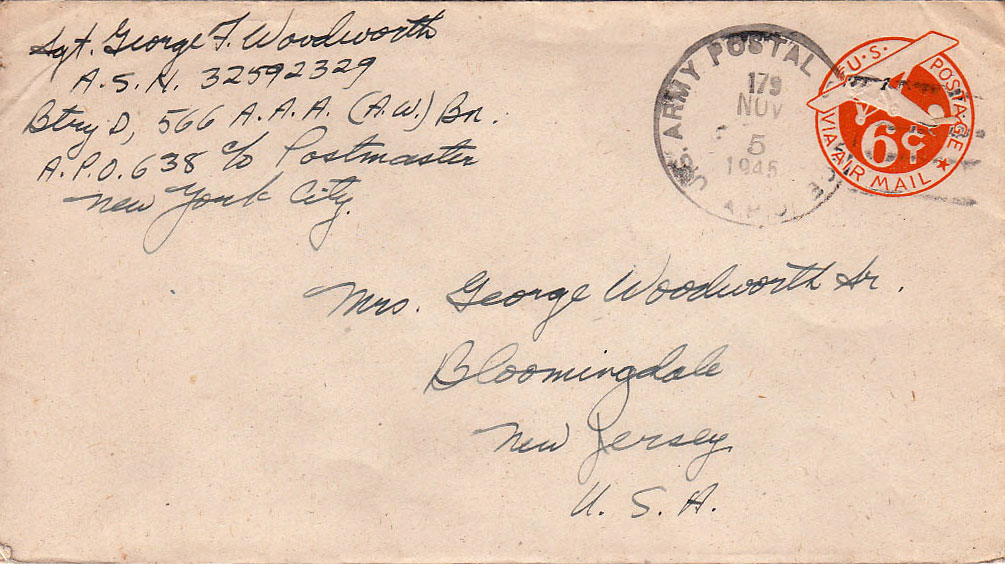 Sgt. George F. Woodworth
A.S.N. 32592329
Btry D, 566 A.A.A. (A.W.) Bn.
A.P.O. 638 c/o Postmaster
New York City.
U.S. ARMY POSTAL
179
NOV
5
1945
A.P.O.
U.S. POSTAGE
6¢
VIA AIR MAIL
Mrs. George Woodworth Sr.
Bloomingdale
New Jersey
U. S. A.